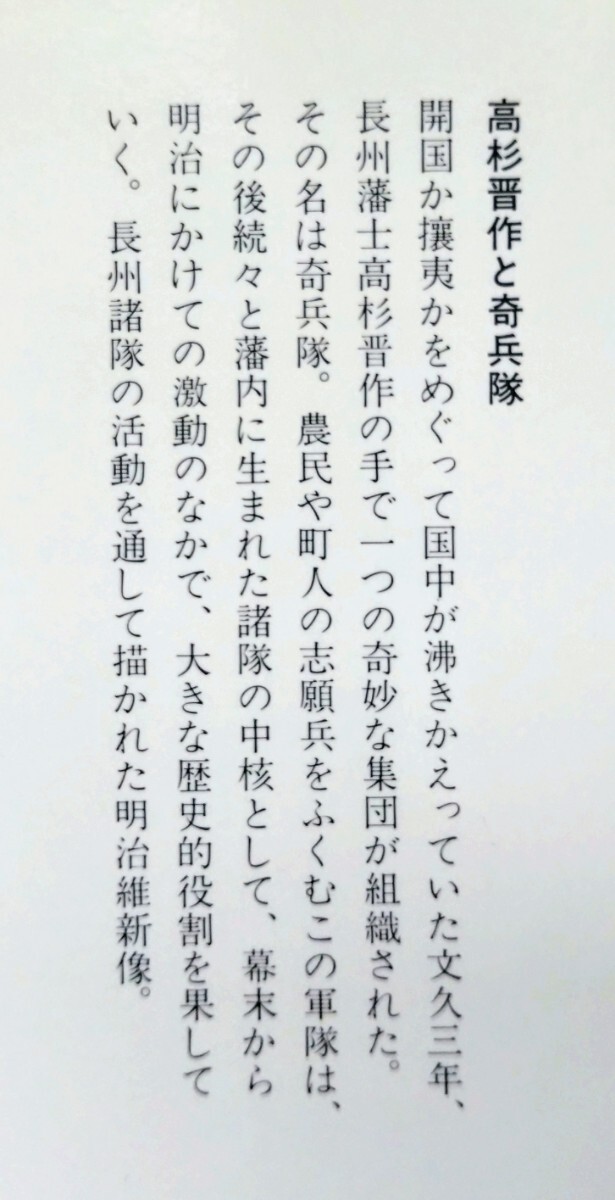 高杉晋作と奇兵隊
開国か攘夷かをめぐって国中が沸きかえっていた文久三年、
長州藩士高杉晋作の手で一つの奇妙な集団が組織された。
その名は奇兵隊。農民や町人の志願兵をふくむこの軍隊は、
その後続々と藩内に生まれた諸隊の中核として、幕末から
明治にかけての激動のなかで、大きな歴史的役割を果して
いく。長州諸隊の活動を通して描かれた明治維新像。